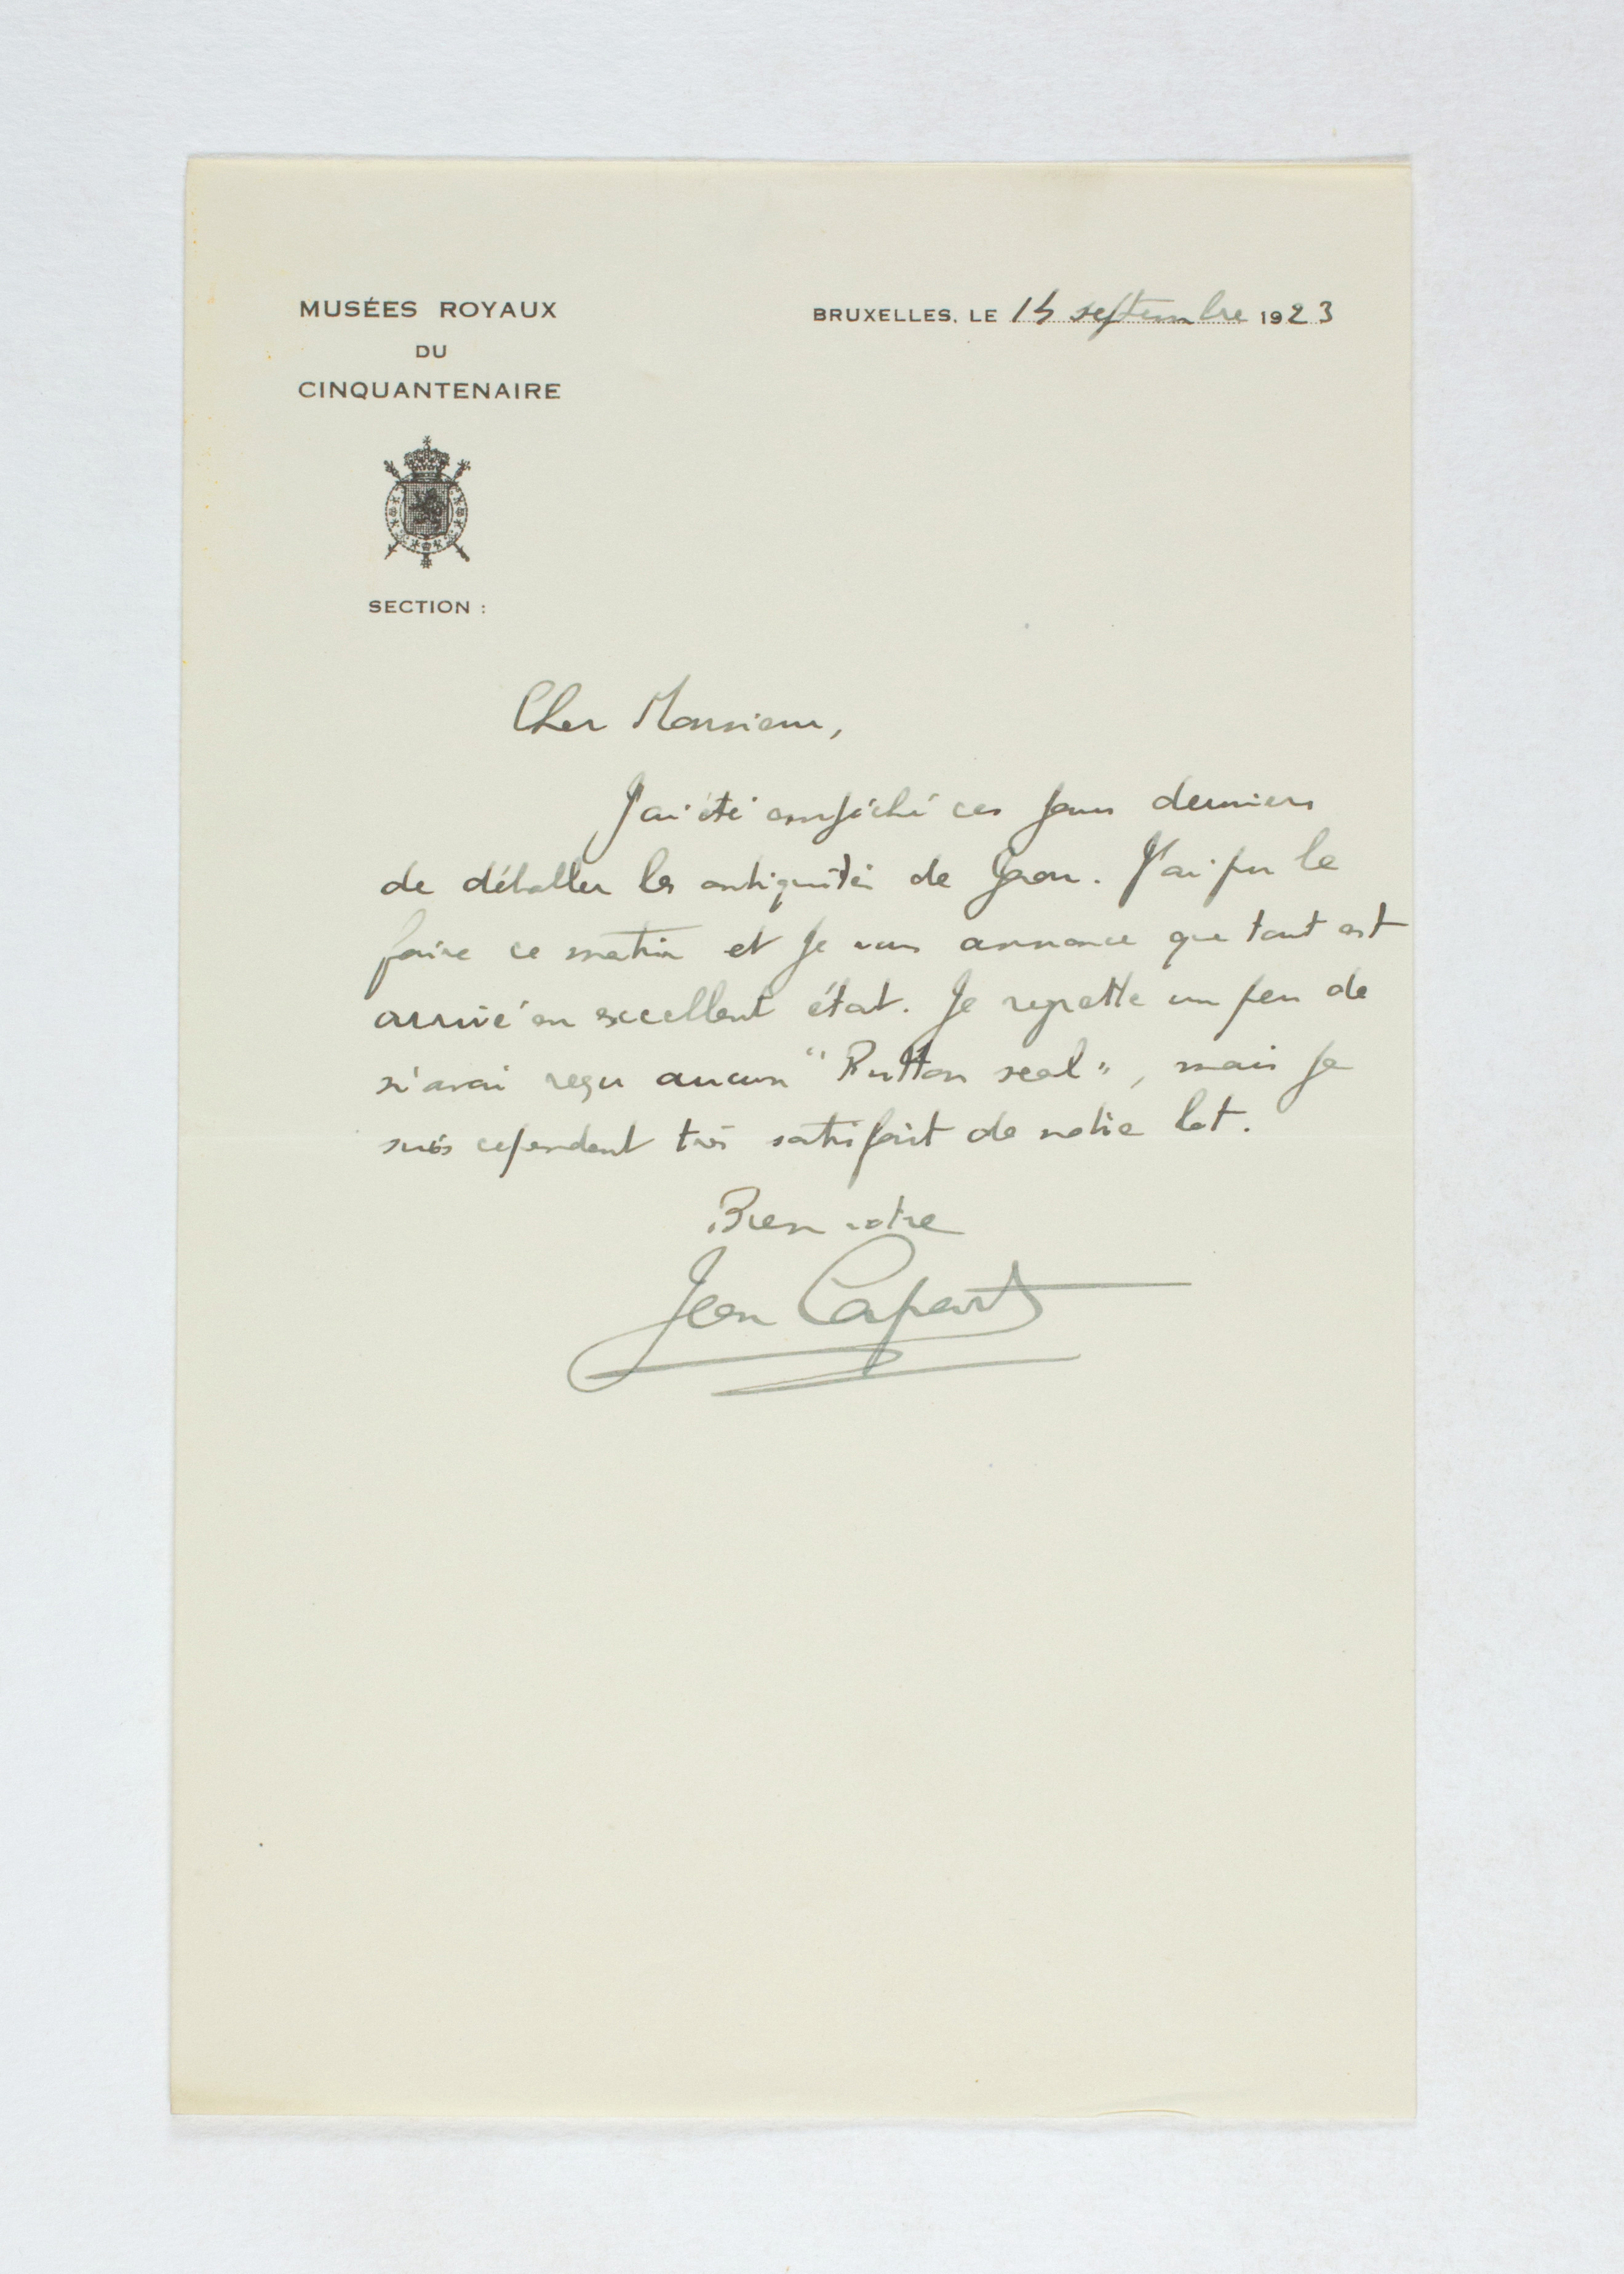 MUSÉES ROYAUX
DU
CINQUANTENAIRE
SECTION :
BRUXELLES, LE 15 septembre 1923
Cher Monsieur,
J'ai été empêché ces jours derniers
de déballer les antiquités de Qaou. J'ai pu le
faire ce matin et je vous annonce que tout est
arrivé en excellent état. Je regrette un peu de
n'avoir reçu aucun "Button seal", mais je
suis cependant très satisfait de notre lot.
Bien vôtre
Jean Capart